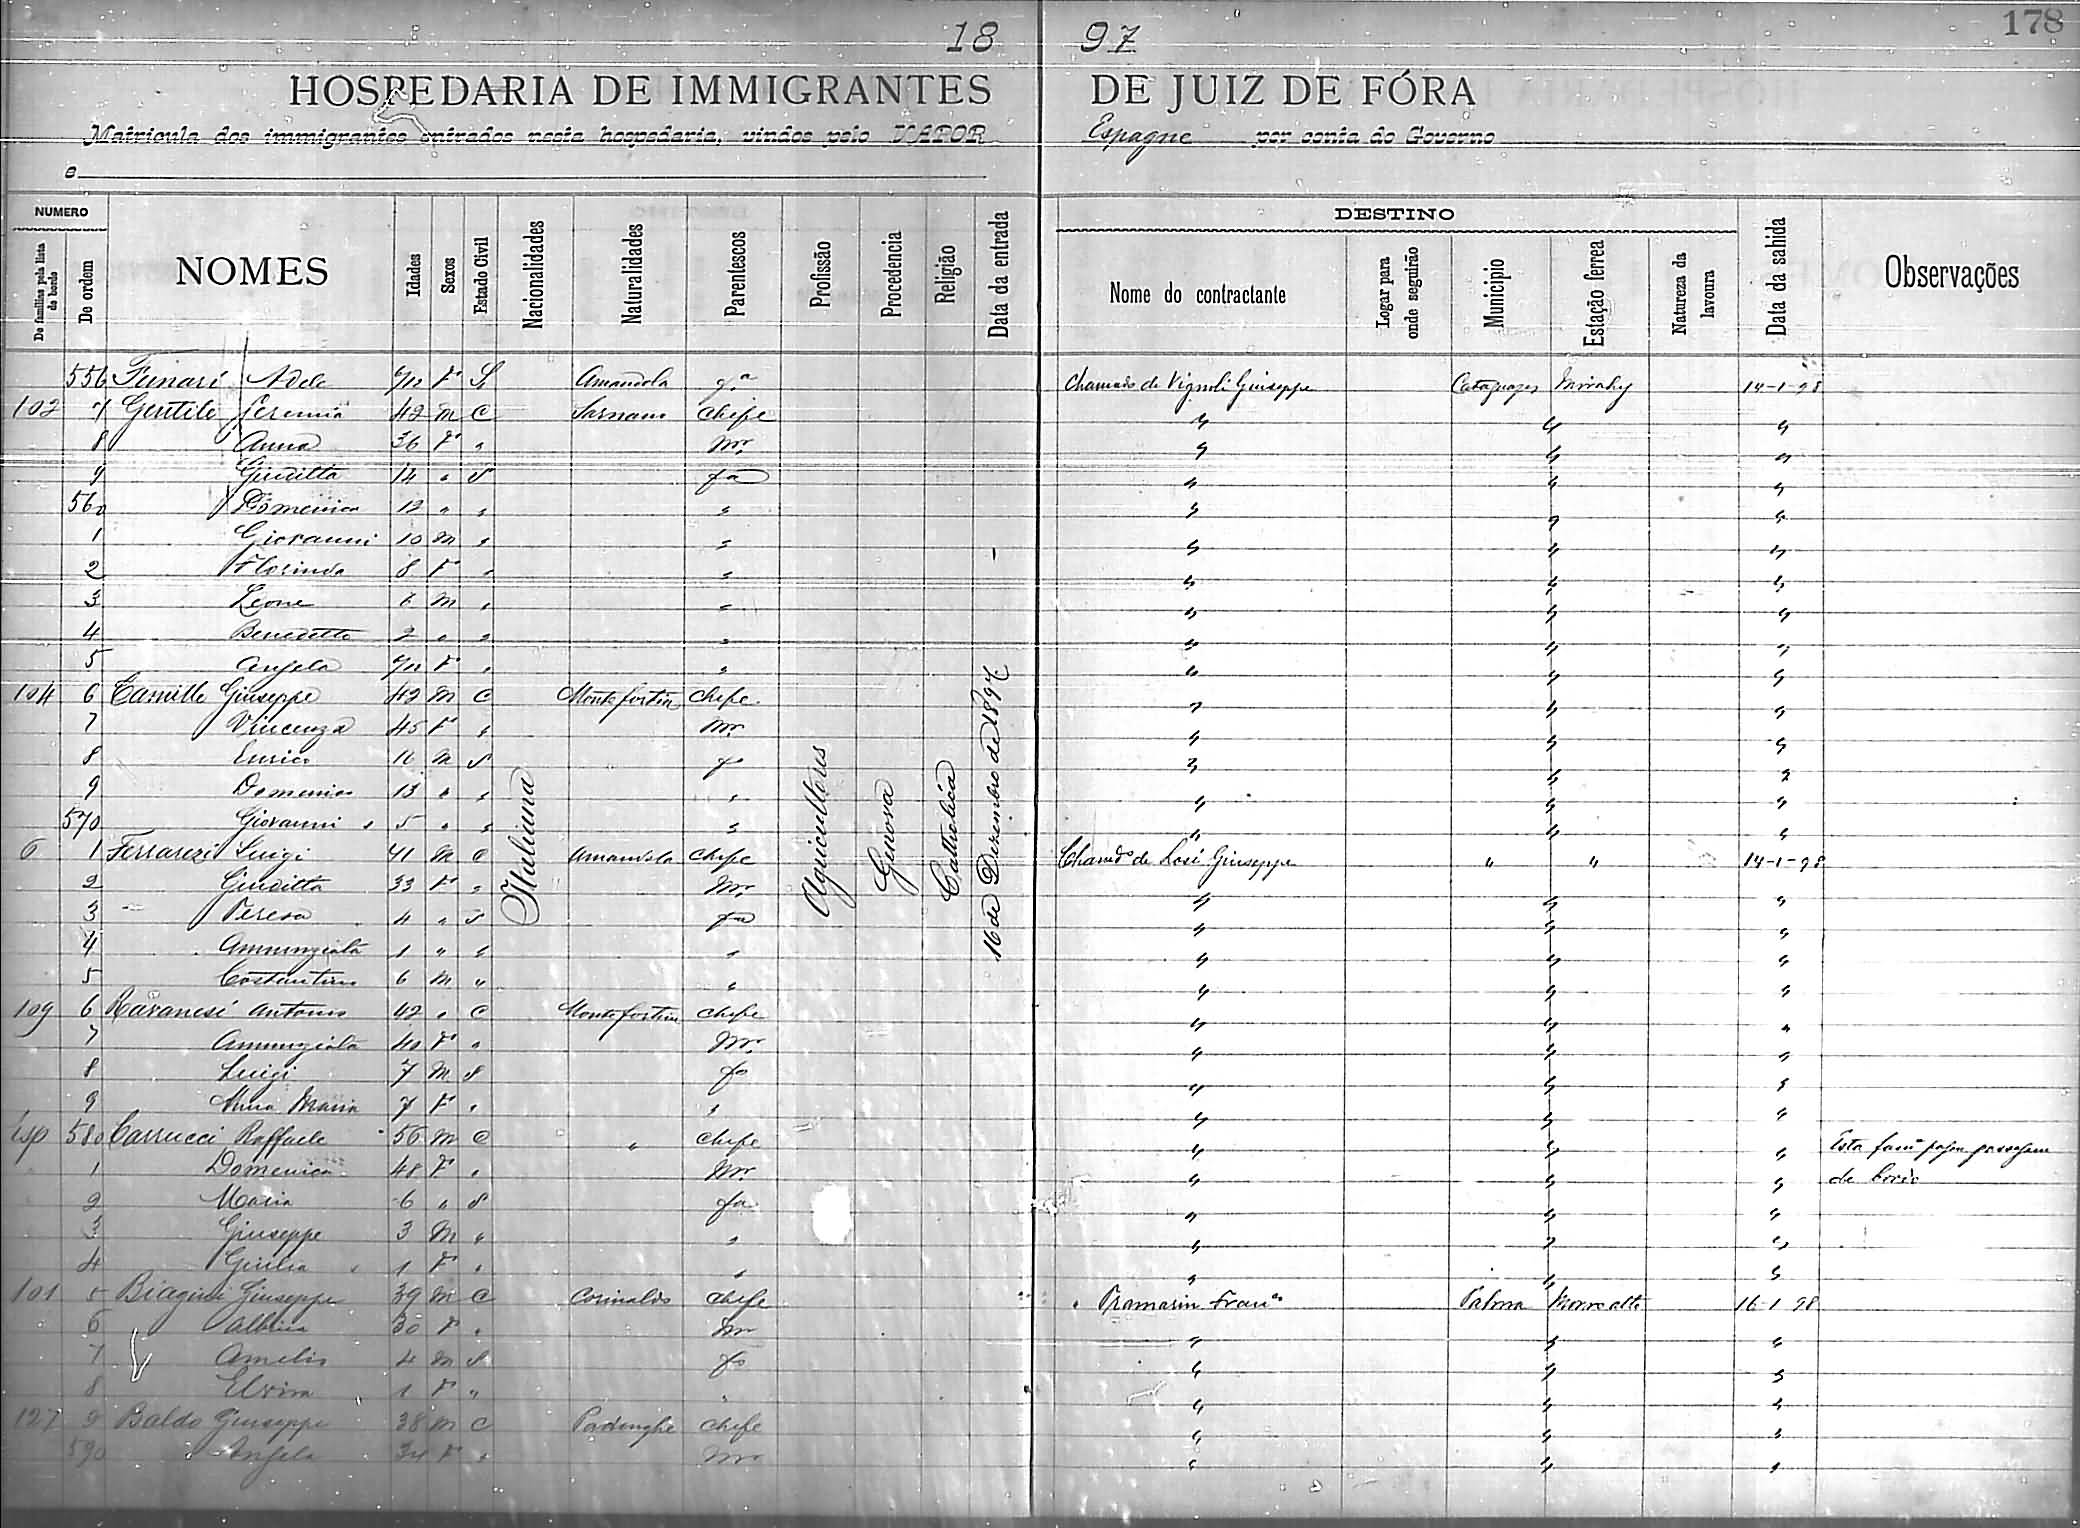 18 97
178
HOSPEDARIA DE IMMIGRANTES DE JUIZ DE FÓRA
Matricula dos immigrantes entrados nesta hospedaria, vindos pelo VAPOR Espagne por conta do Governo
e
NUMERO
De familias pela lista de bordo
De ordem
NOMES
Idades
Sexos
Estado Civil
Nacionalidades
Naturalidades
Parentescos
Profissão
Procedencia
Religião
Data da entrada
DESTINO
Nome do contractante
Logar para onde seguirão
Municipio
Estação ferrea
Natureza da lavoura
Data da sahida
Observações
Italiana
Agricultores
Genova
Catholica
16 de Dezembro de 1897
556 Adele F S Amandola Chamado de Vignoli Giuseppe 14-1-98
102 7 Gentile 42 M C Sarnano Chefe "
8 Anna 36 F " Mr "
9 Giuditta 14 " S fa "
560 Domenica 12 " " " "
1 Giovanni 10 M " " "
2 Florinda 8 F " " "
3 Leone 6 M " " "
4 Benedetto 2 " " " "
5 Angela F " " "
104 6 Camille Giuseppe 42 M C Chefe "
7 Vincenza 45 F " Mr "
8 Enrico M S fo "
9 Domenico 13 " " " "
570 Giovanni 5 " " " "
6 1 Ferrarezi Luigi 41 M C Amandola Chefe Giuseppe " " 14-1-98
2 Giuditta 33 F " Mr "
3 Teresa 4 " S fa "
4 Annunziata 1 " " " "
5 Costantino 6 M " " "
109 6 Ravanesi Antonio 42 " C Chefe "
7 Annunziata 40 F " Mr "
8 Luigi 7 M S fo "
9 Anna Maria 7 F " " "
Esp 580 Carrucci Raffaele 56 M C " Chefe " Esta passagem
1 Domenica 48 F " Mr " de
2 Maria 6 " S fa "
3 Giuseppe 3 M " " "
4 Giulia 1 F " " "
101 5 Biagini Giuseppe 39 M C Corinaldo Chefe " Palma 16-1-98
6 Albina 30 F " Mr "
7 4 M S fo "
8 Elvira 1 F " " "
127 9 Baldo Giuseppe 38 M C Padenghe Chefe "
590 Angela 34 F " Mr "